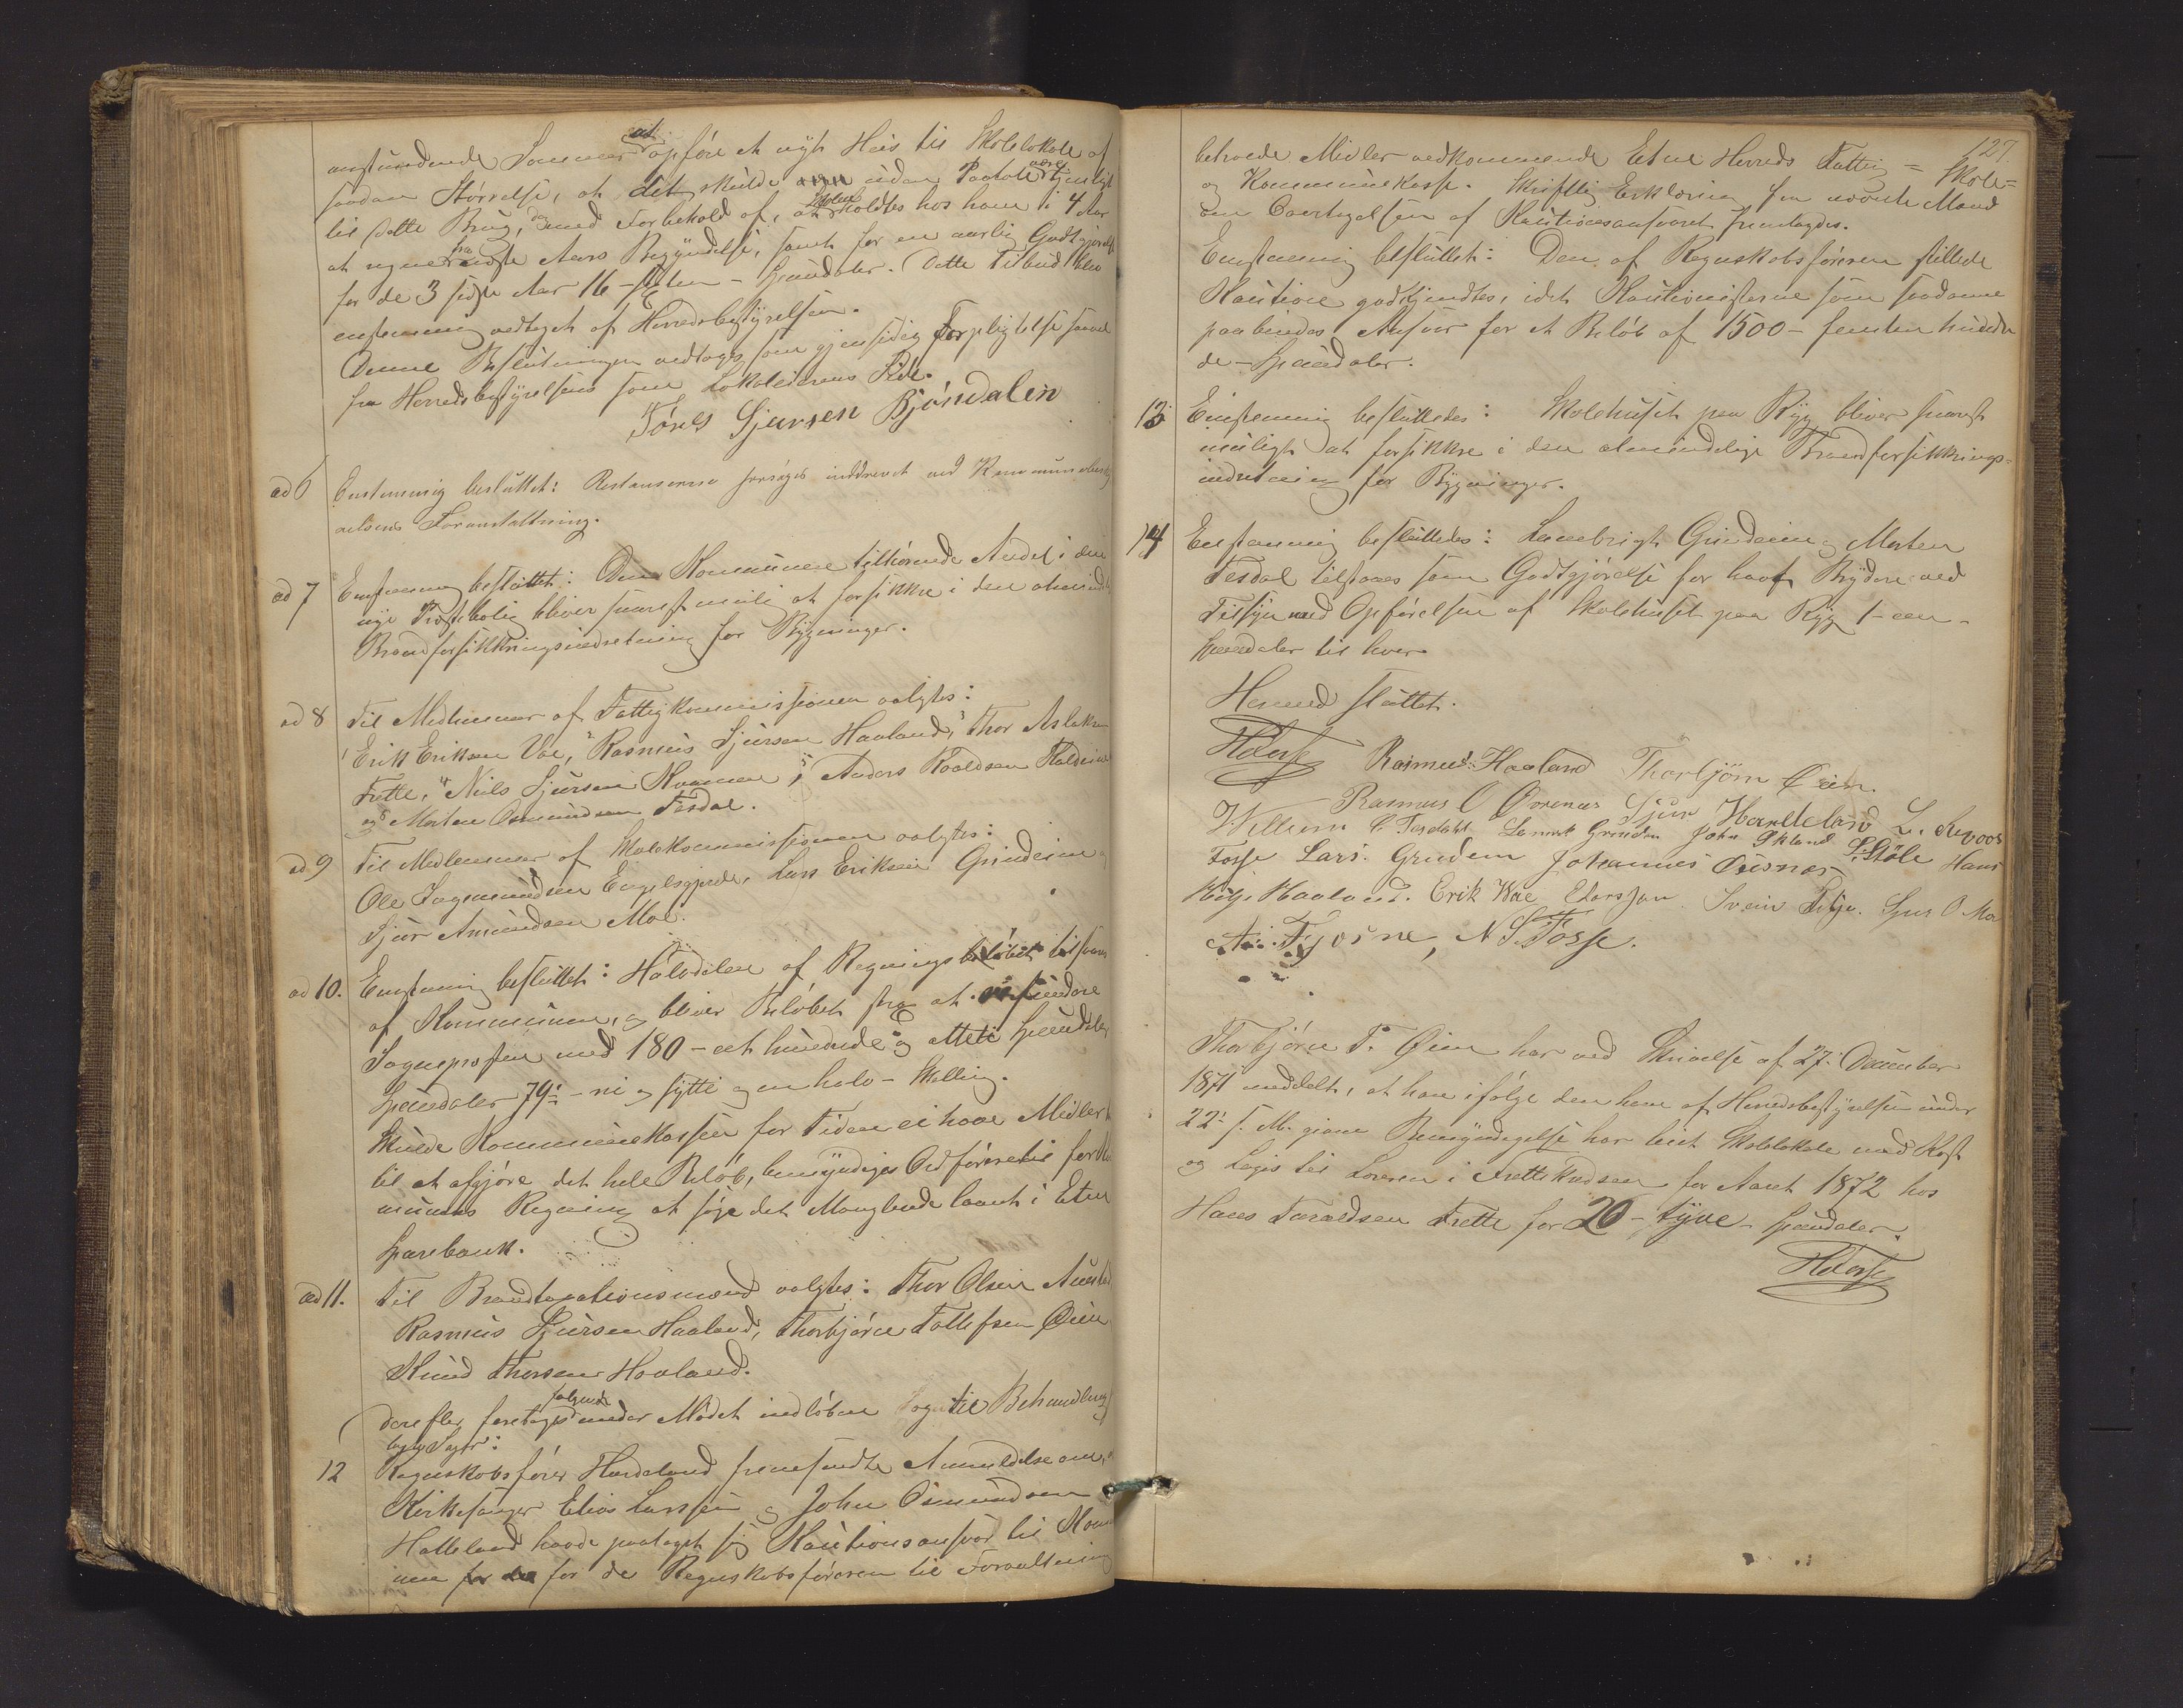 anstundende Sommer at opføre et nyt Huus til Skolelokale af
saadan Størrelse, at det skulde være uden Paatale tjenligt
til dette Brug, dog med Forbehold af, at Skolen holdtes hos ham i 4 Aar
at regne fra næste Aars Begyndelse, samt for en aarlig Godtgjørelse
for de 3 sidste Aar 16 - sexten - Speciedaler. Dette Tilbud blev
enstemmig vedtaget af Herredsbestyrelsen.
Denne Beslutningen vedtoges som gjensidig Forpligtelse saavel
fra Herredsbestyrelsens som Lokaleierens Side.
Tørres Sjursen Bjøndalen
ad 6 Enstemmig besluttet: Restanserne søges inddrevet ved Kommunebesty
relsens Foranstaltning.
ad 7 Enstemmig besluttet: Den Kommunen tilhørende Andel i den
nye Præstebolig bliver snarest mulig at forsikkre i den almindelige
Brandforsikkringsindretning for Bygninger.
ad 8 Til Medlemmer af Fattigkommissionen valgtes:
1 Erik Eriksen Vae, 2 Rasmus Sjursen Haaland, 3 Thor Aslaksen
Frette, 4 Niels Sjursen Kvamen, 5 Anders Roaldsen Kaldeim
og 6 Morten Osmundsen Tesdal.
ad 9 Til Medlemmer af Skolekommissionen valgtes:
Ole Ingemundsen Engelsgjerde, Lars Eriksen Grindeim og
Sjur Amundsen Moe.
ad 10. Enstemmig besluttet: Halvdelen af Regningsbeløbet tilstaaes
af Kommunen, og bliver Beløbet strax at refundere
Sogneprosten med 180 - et hundrede og otteti Speciedaler
Speciedaler 79½ - ni og sytti og en halv - Skilling.
Skulde Kommunekassen for Tiden ei have Midler
til at afgjøre det hele Beløb, bemyndiges Ordføreren til for Kom
munens Regning at søge det Manglende laant i Etne
Sparebank.
ad 11. Til Brandtaxationsmænd valgtes: Thor Olsen Austad
Rasmus Sjursen Haaland, Thorbjørn Tollefsen Øien
Knud Thorsen Haaland.
Derefter foretoges følgende under Mødet indløbne og til Behandling
lagte Sager:
12 Regnskabsfører Hardeland fremsendte Anmeldelse om, at
Kirkesanger Elias Larssen og John Osmundsen
Halleland havde paataget sig Kautionsansvar til Kommu
nen for de for de Regnskabsføreren til Forvaltning
127.
betroede Midler vedkommende Etne Herreds Fattig- Skole-
og Kommunekasse. Skriftlig Erklæring fra nævnte Mænd
om Overtagelsen af Kautionsansvaret fremlagdes.
Enstemmig besluttet: Den af Regnskabsføreren stillede
Kaution godkjendtes, idet Kautionisterne som saadanne
paabindes Ansvar for et Beløb af 1500 - femten hundre
de - Speciedaler.
13 Enstemmig besluttedes: Skolehuset paa Ryg bliver snarest
muligt at forsikkre i den almindelige Brandforsikkrings-
indretning for Bygninger.
14 Enstemmig besluttedes: Lambrigt Grindeim og Morten
Tesdal tilstaaes som Godtgjørelse for havt Bryderi ved
Tilsyn med Opførelsen af Skolehuset paa Ryg 1 - een -
Speciedaler til hver.
Hermed sluttet.
Rasmus Haaland Thorbjørn Øien.
Rasmus O Øvrenæs Sjur Hardeland
Willum C. Tesdahl Lamrik Grinden John Økland S. Støle Hans
Fosse Lars. Grindem Johannes Osisnæs
Helje Haaland. Erik Wae ELarsson. Svein Silje. Sjur O Moe
A. Fjøsne, N S Fosse.
Thorbjørn T. Øien har ved Skrivelse af 27. December
1871 meddelt, at han ifølge den ham af Herredsbestyrelsen under
22. s. M. givne Bemyndigelse har leiet Skolelokale med Kost
og Logis til Læreren i Frettekredsen for Aaret 1872 hos
Hans Taraldsen Frette for 20 - tyve - Speciedaler.